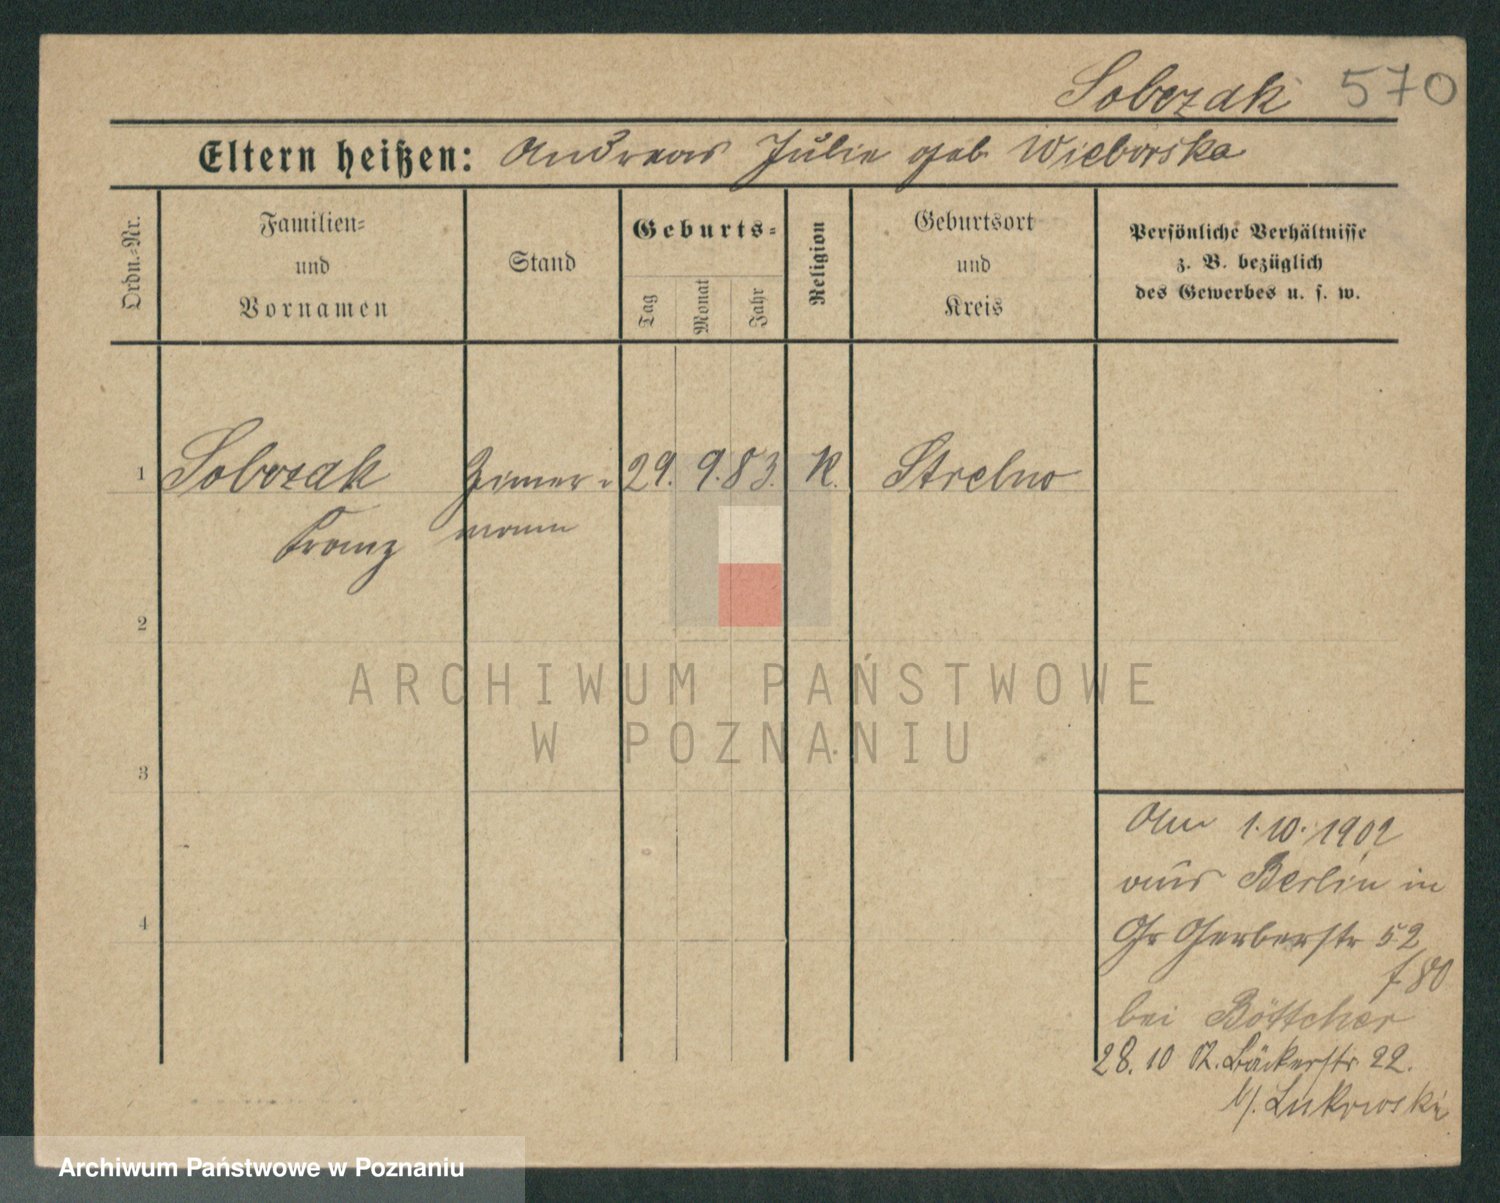 Sobczak 570
Eltern heißen: Andreas Julie geb Wieborska
Ordn.=Nr.
Familien=
und
Vornamen
Stand
Geburts=
Tag
Monat
Jahr
Religion
Geburtsort
und
Kreis
Persönliche Verhältnisse
z. B. bezüglich
des Gewerbes u. s. w.
1 Sobczak Zimer= 29. 9. 83. K. Strelno
Franz mann
2
ARCHIWUM PAŃSTWOWE
W POZNANIU
3
Am 1.10.1902
aus Berlin in
Gr Gerberstr 52
f. 80
4
bei Böttcher
28. 10 02. Bäckerstr 22.
b/. Lukowski
Archiwum Państwowe w Poznaniu